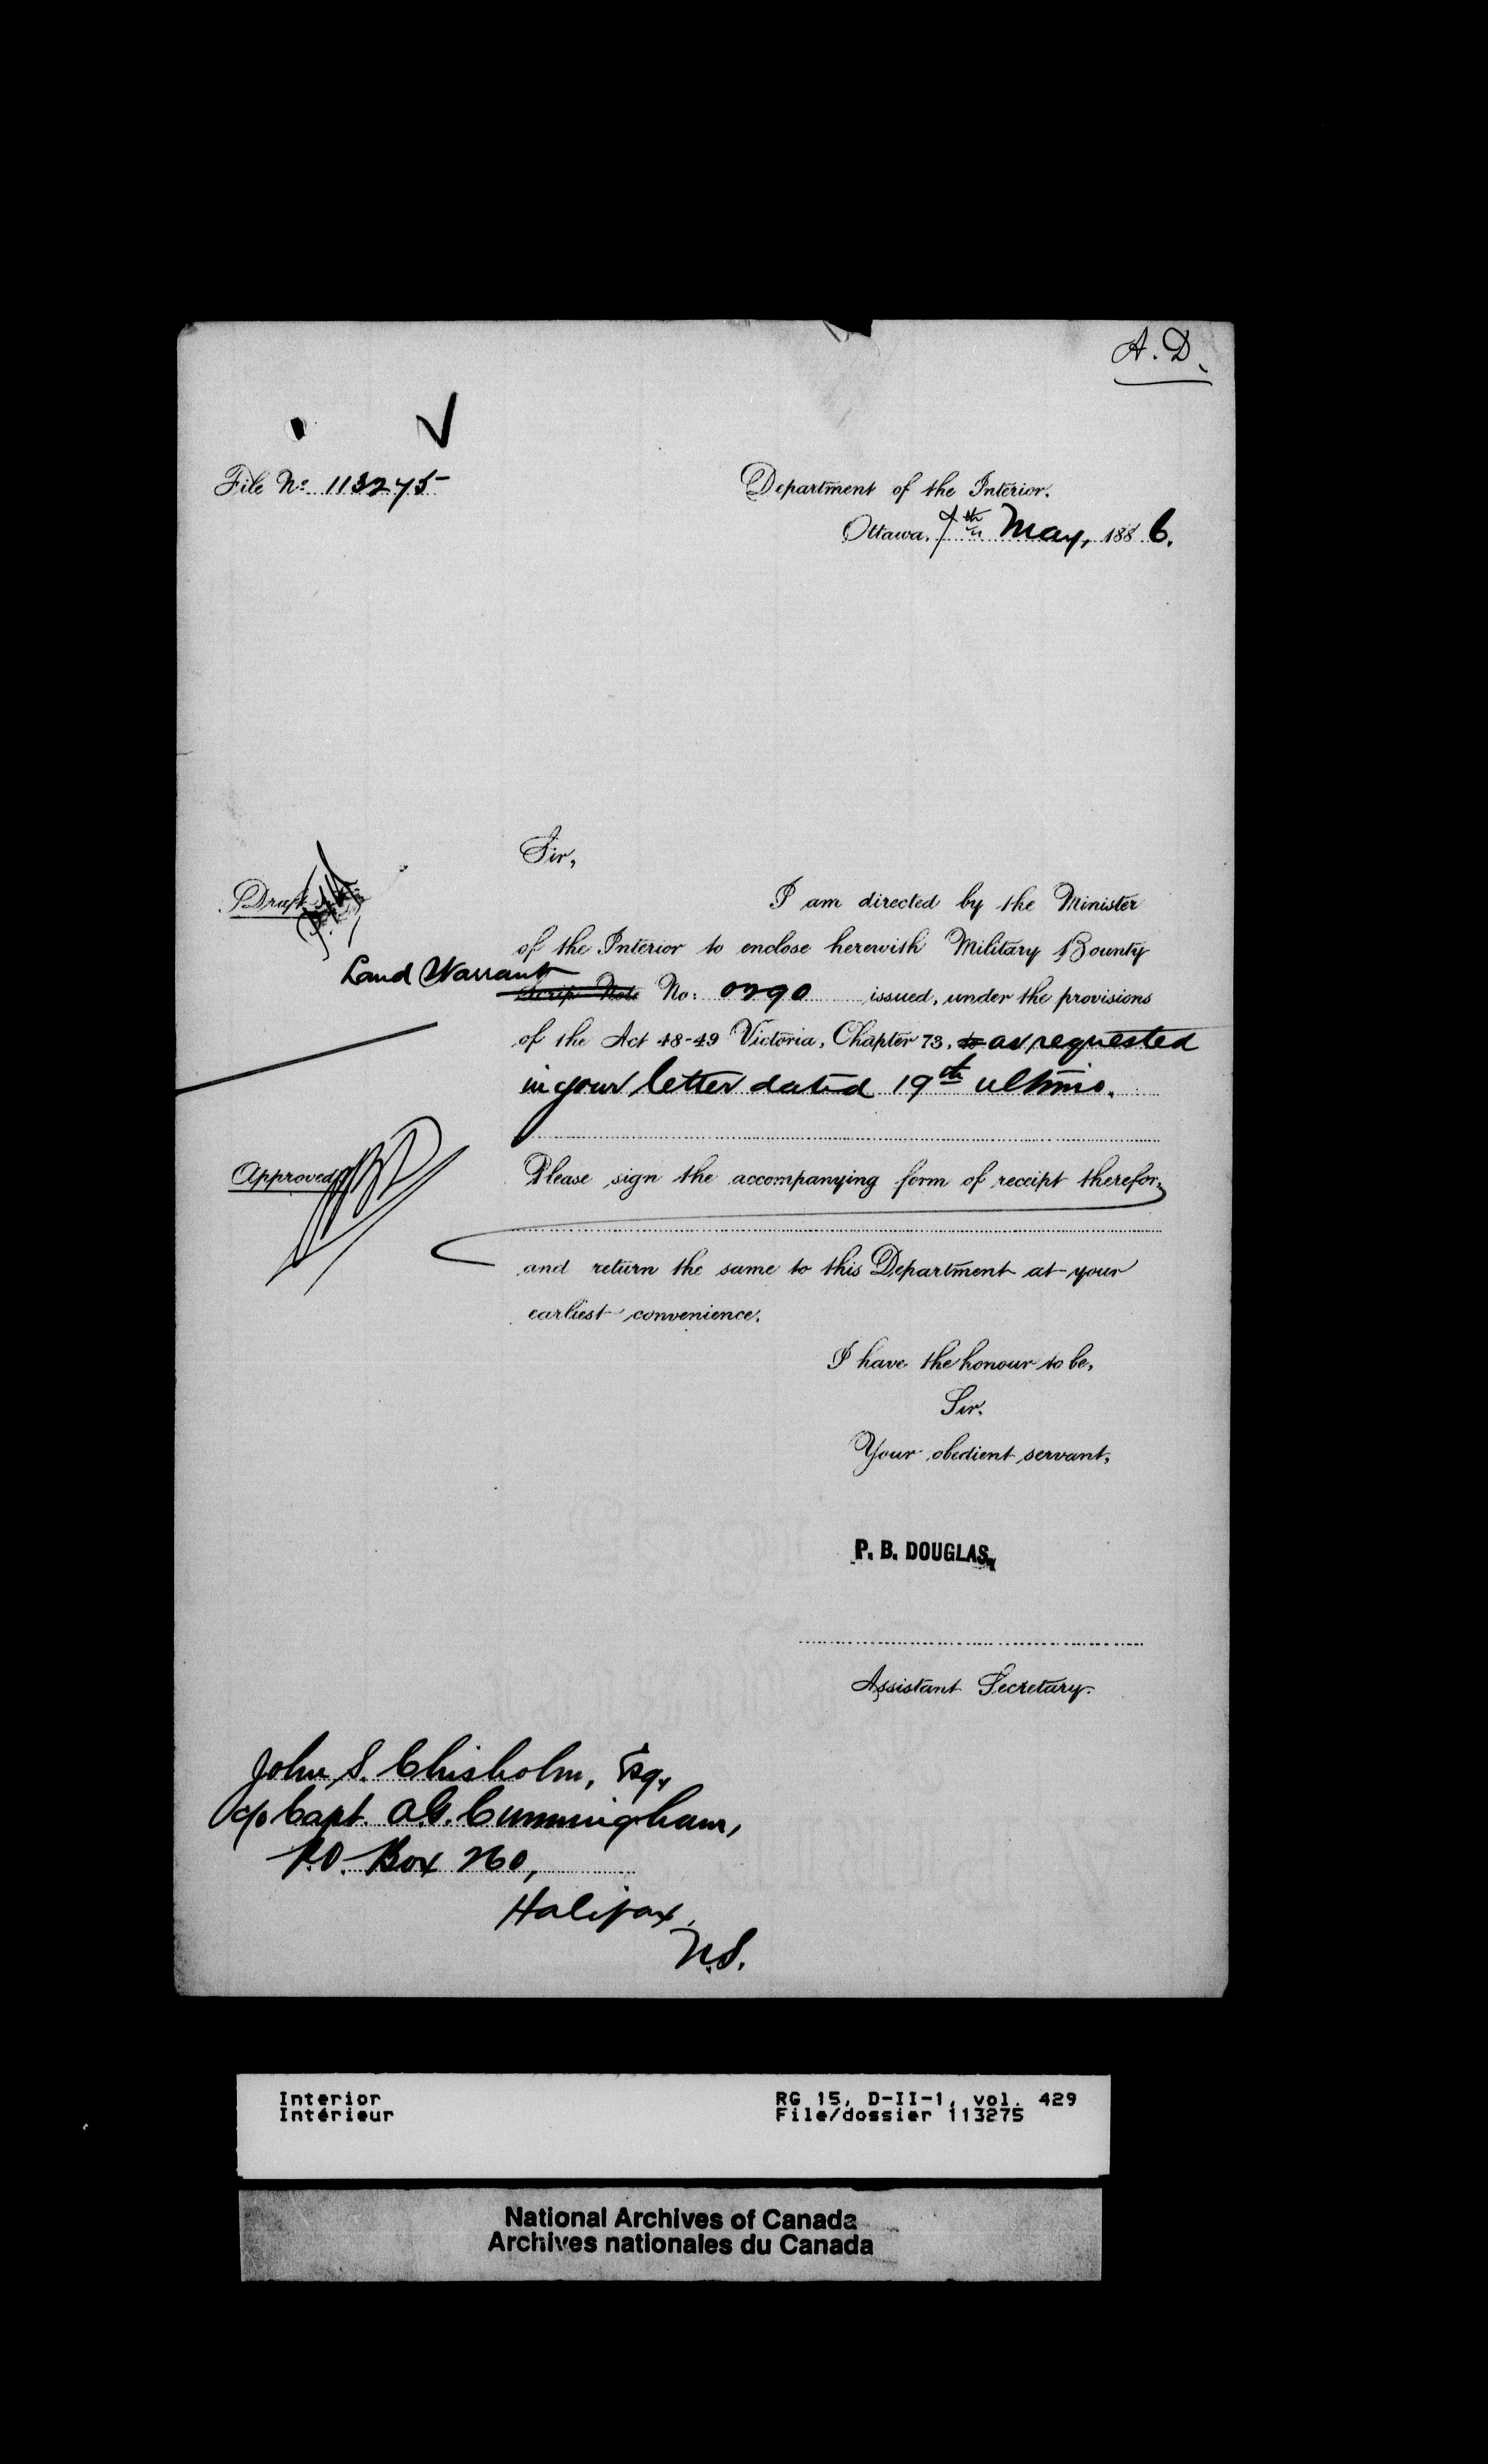 A. D.
File No. 113275
Department of the Interior.
Ottawa, 7th May, 1886.
Sir,
Draft
I am directed by the Minister
of the Interior to enclose herewith Military Bounty
Land Warrant
Scrip Note No: 0290 issued, under the provisions
of the Act 48-49 Victoria, Chapter 73, to as requested
in your letter dated 19th ultimo.
Approved
Please sign the accompanying form of receipt therefor,
and return the same to this Department at your
earliest convenience.
I have the honour to be,
Sir,
Your obedient servant,
P. B. DOUGLAS,
Assistant Secretary.
John S. Chisholm, Esq,
c/o Capt. A.G. Cunningham,
P.O. Box 260,
Halifax,
N.S.
Interior
Intérieur
RG 15, D-II-1, vol. 429
File/dossier 113275
National Archives of Canada
Archives nationales du Canada